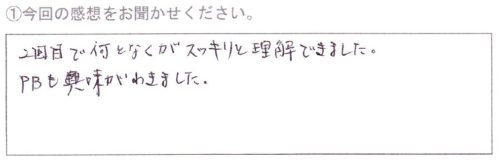 ①今回の感想をお聞かせください。
2回目で何となくがスッキリと理解できました。
PBも興味がわきました。